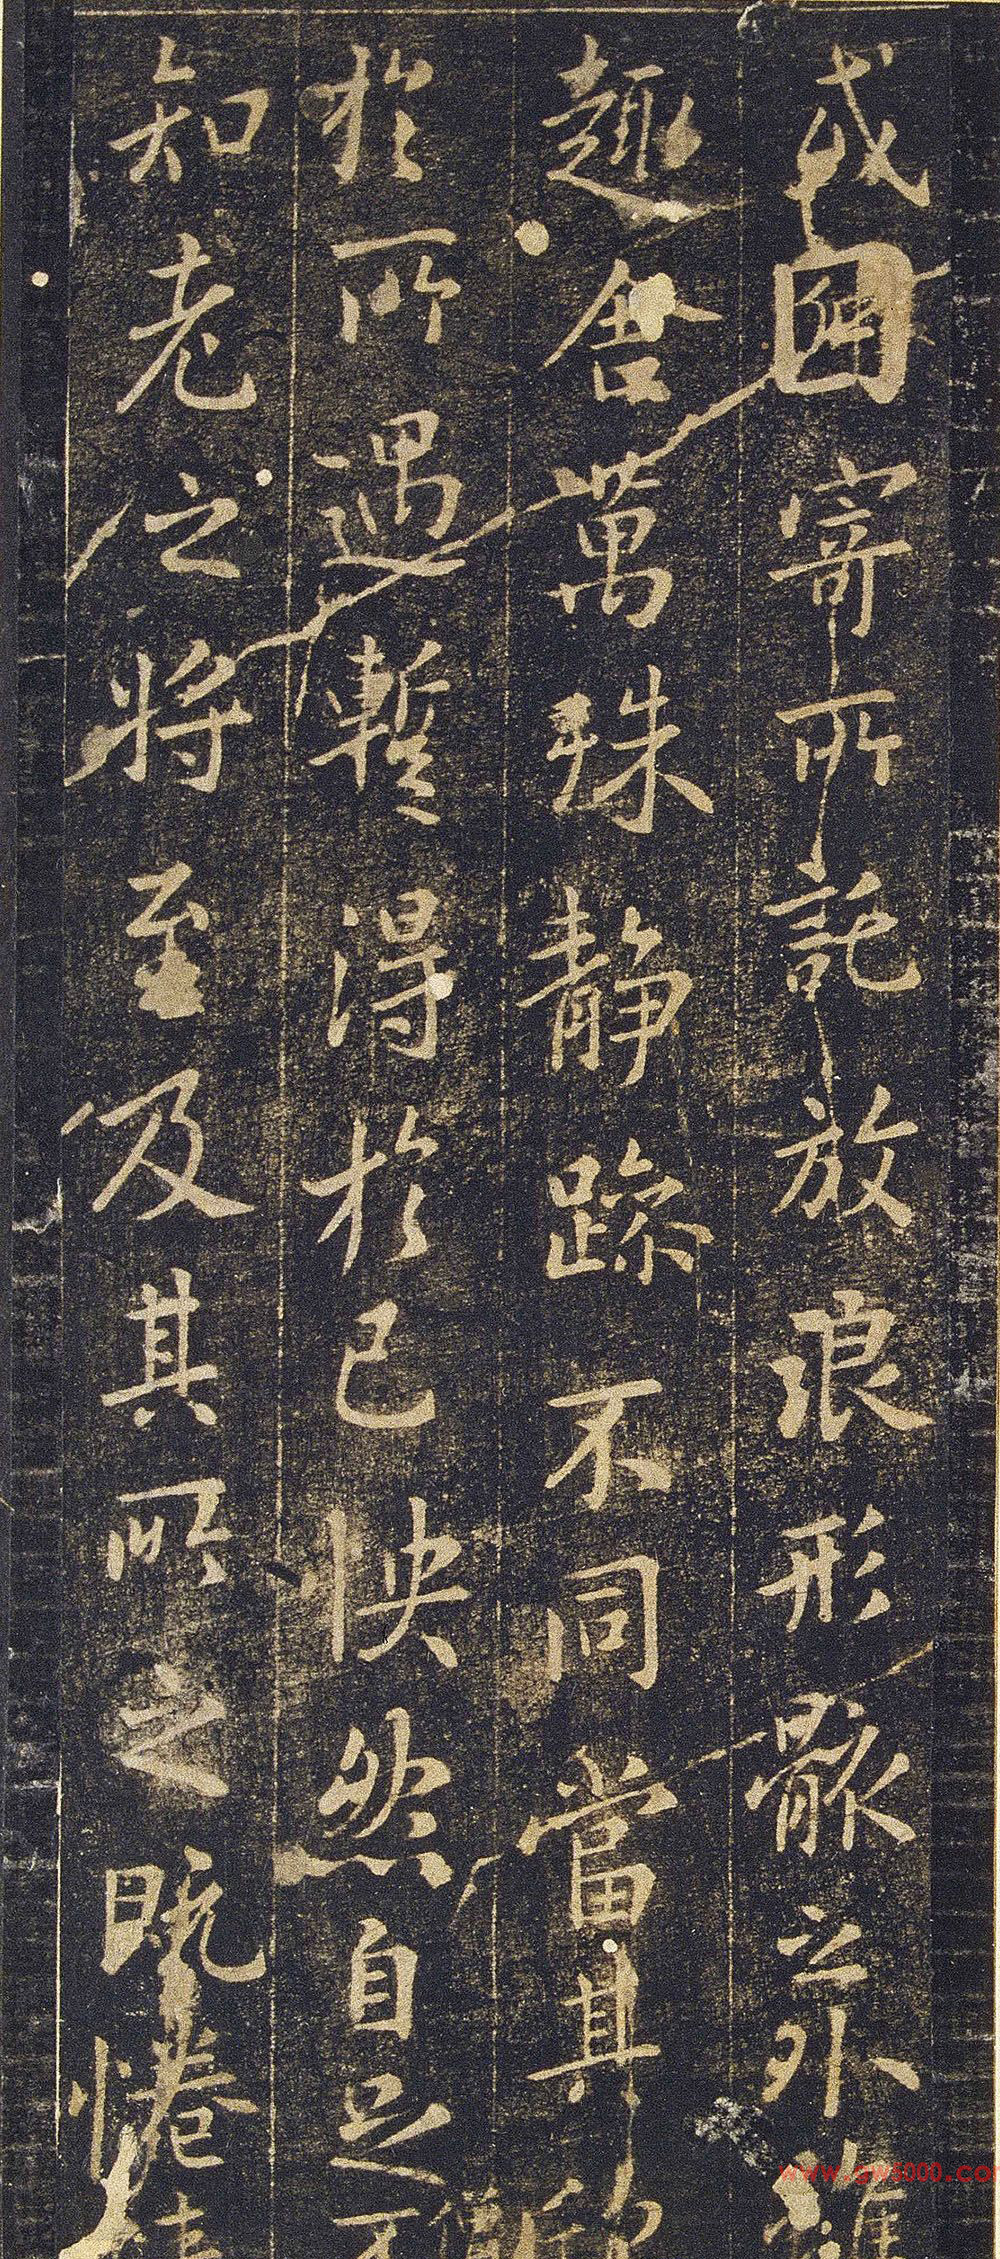 或因寄所託放浪形骸之外雖
趣舍萬殊靜躁不同當其欣
於所遇暫得於己怏然自足不
知老之將至及其所之既惓情
www.gw5000.com